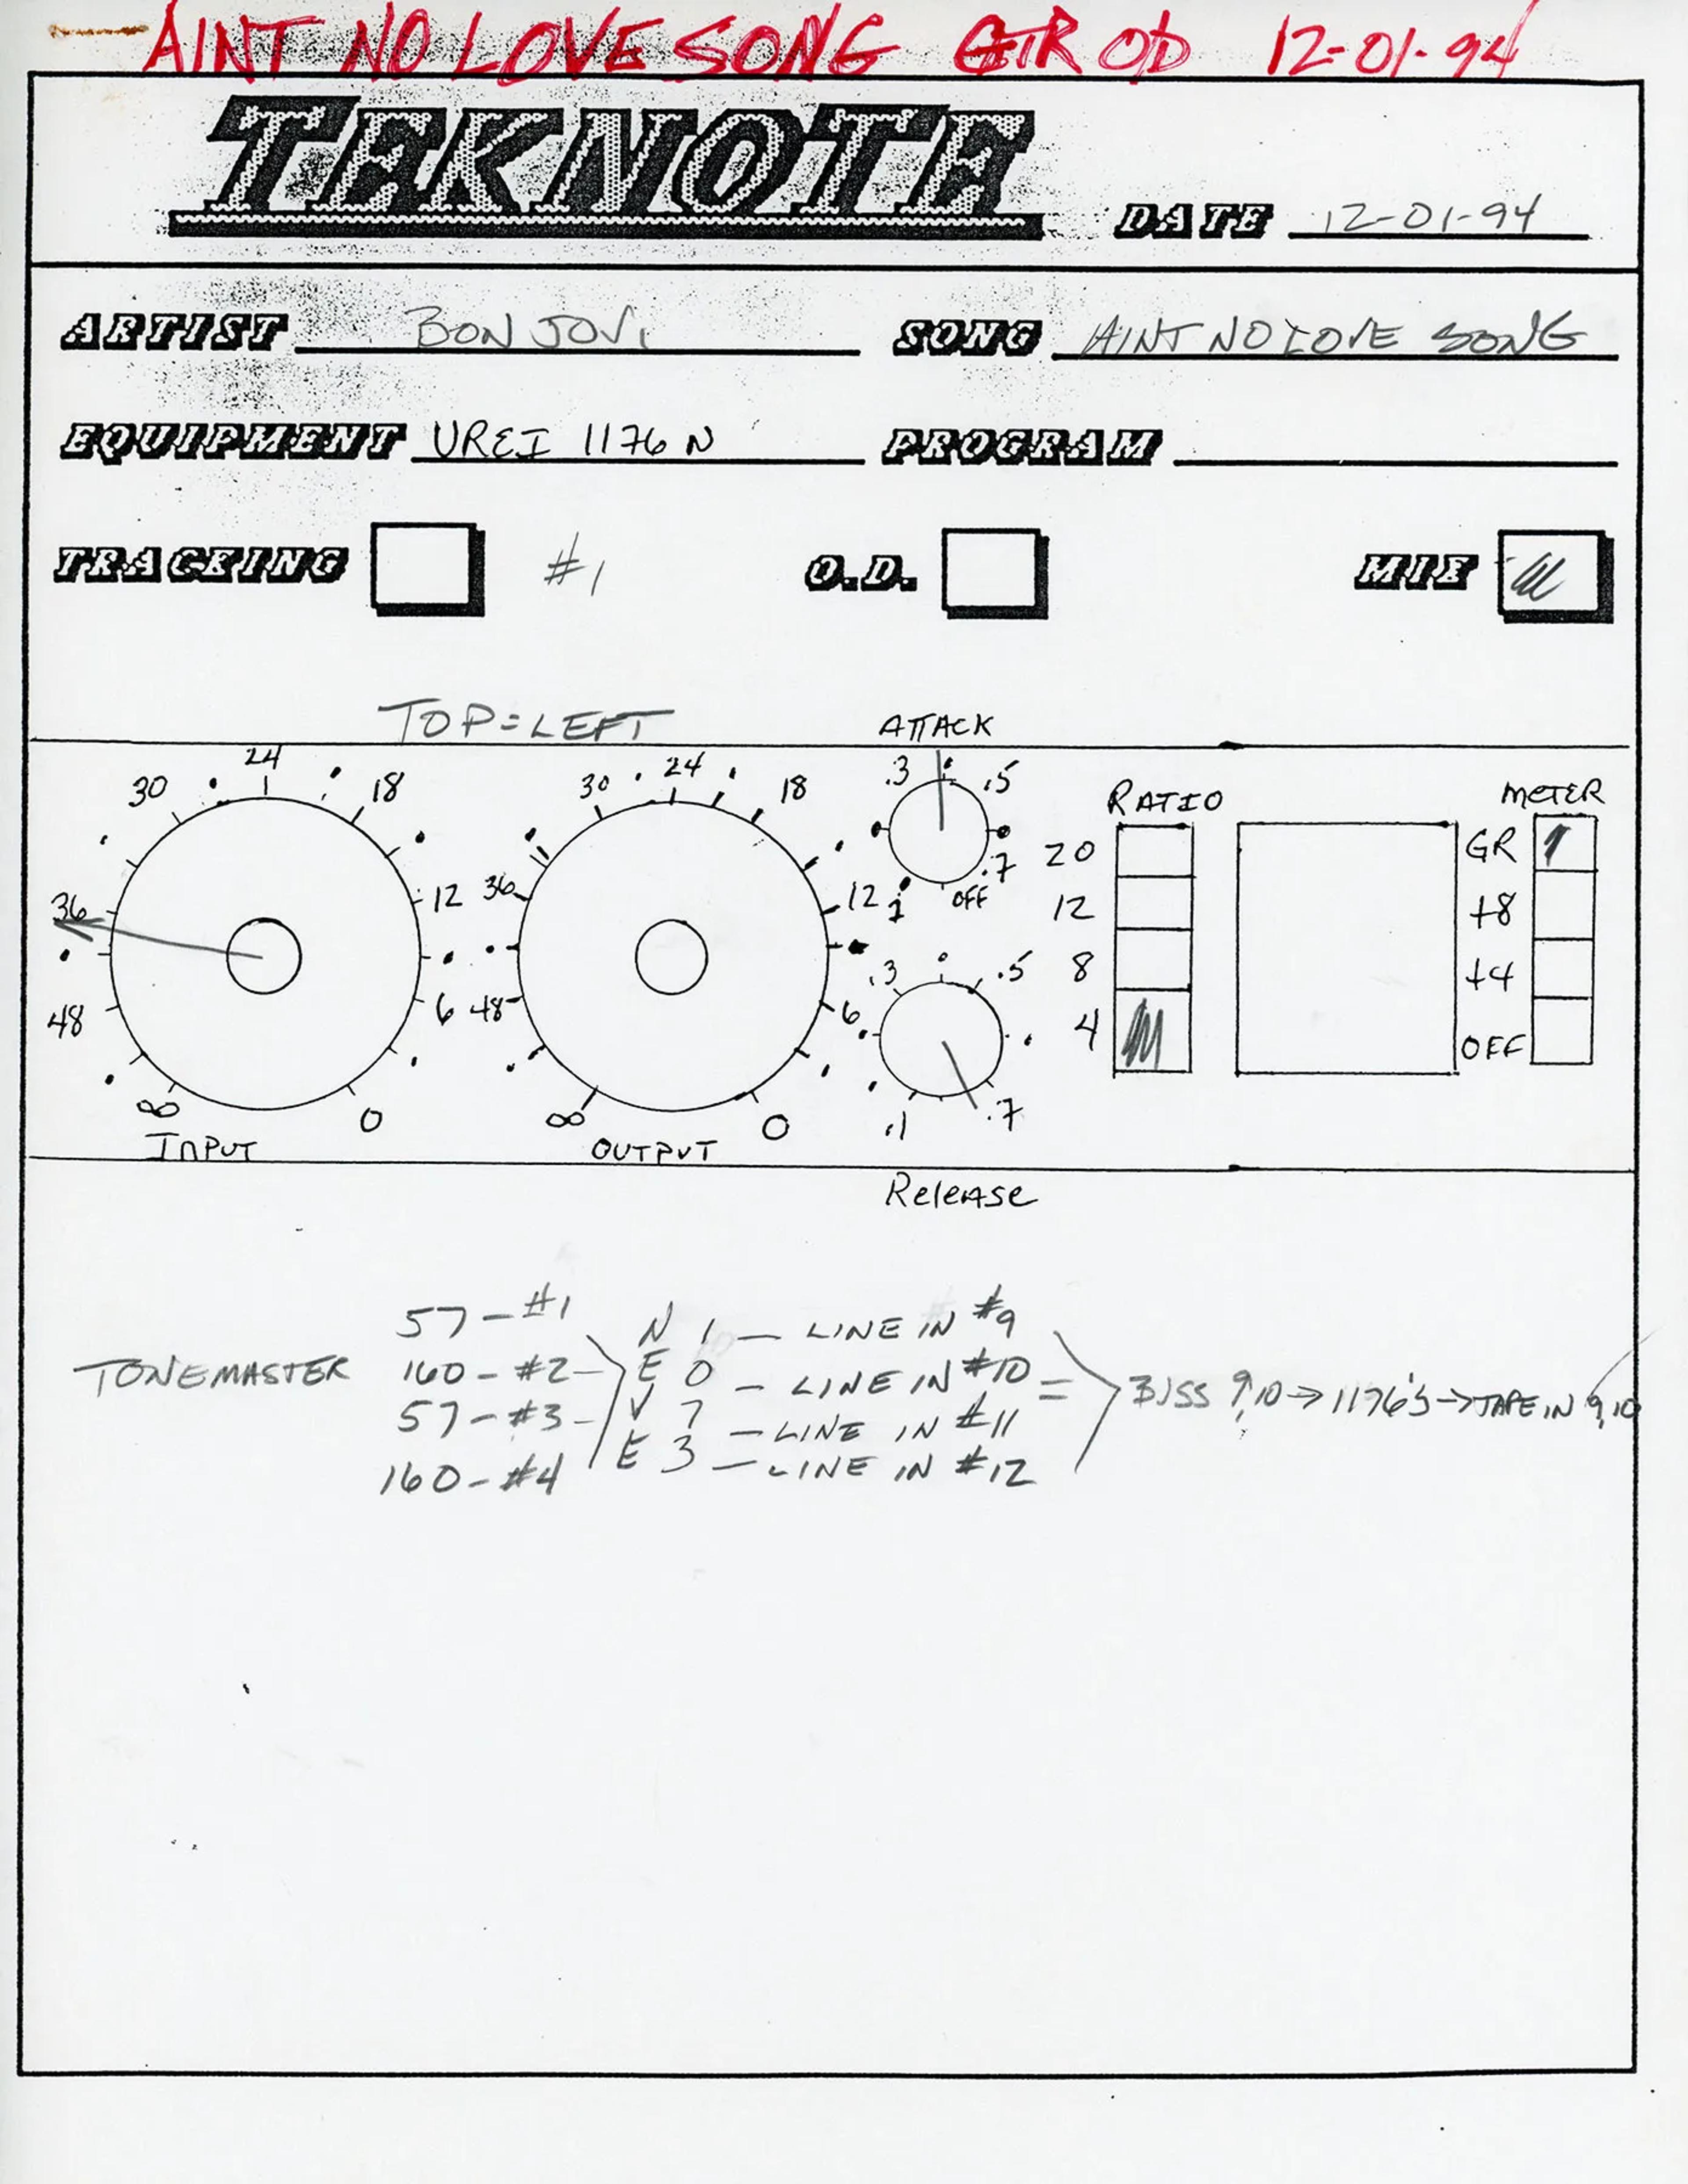 AINT NO LOVE SONG GTR OD 12-01-94
TEKNOTE DATE 12-01-94
ARTIST BON JOVI SONG AINT NO LOVE SONG
EQUIPMENT UREI 1176 N PROGRAM
TRACKING #1 O.D. MIX
TOP=LEFT ATTACK
24 24 .3 .5
30 18 30 18 RATIO METER
.7 20 GR
36 12 36 12 1 OFF 12 +8
.3 .5 8 +4
48 6 48 6 4 OFF
∞ 0 ∞ 0 .1 .7
INPUT OUTPUT
Release
57-#1 N 1 — LINE IN #9
TONEMASTER 160-#2- E 0 — LINE IN #10 = BUSS 9,10→1176's→TAPE IN 9,10
57-#3- V 7 — LINE IN #11
160-#4 E 3 — LINE IN #12